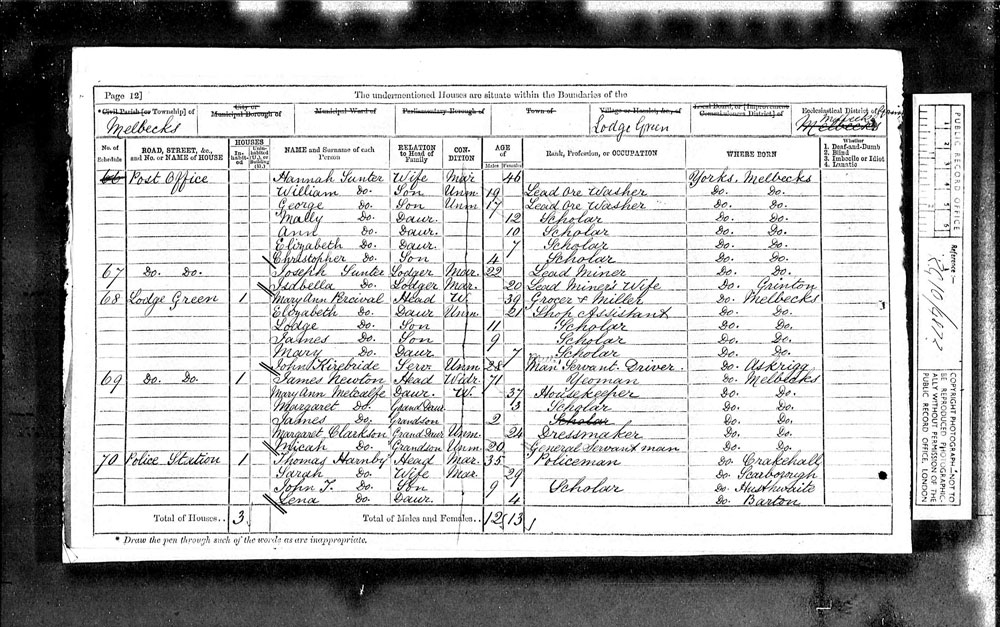 Page 12]
The undermentioned Houses are situate within the Boundaries of the
*Civil Parish [or Township] of
City or Municipal Borough of
Municipal Ward of
Parliamentary Borough of
Town of
Village or Hamlet, &c., of
Local Board, or [Improvement Commissioners District] of
Ecclesiastical District of
Melbecks
Lodge Green
Melbecks
No. of Schedule
ROAD, STREET, &c., and No. or NAME of HOUSE
HOUSES
In-habited
Uninhabited (U.), or Building (B.)
NAME and Surname of each Person
RELATION to Head of Family
CONDITION
AGE of
Males
Females
Rank, Profession, or OCCUPATION
WHERE BORN
Whether
1. Deaf-and-Dumb
2. Blind
3. Imbecile or Idiot
4. Lunatic
66 Post Office Hannah Sunter Wife Mar 46 Yorks. Melbecks
William Do. Son Unm 19 Lead Ore Washer Do. Do.
George Do. Son Unm 17 Lead Ore Washer Do. Do.
Mally Do. Daur. 12 Scholar Do. Do.
Ann Do. Daur. 10 Scholar Do. Do.
Elizabeth Do. Daur. 7 Scholar Do. Do.
Christopher Do. Son 4 Scholar Do. Do.
67 Do. Do. Joseph Sunter Lodger Mar. 22 Lead Miner Do. Do.
Isabella Do. Lodger Mar. 20 Lead Miner's Wife Do. Grinton
68 Lodge Green 1 Mary Ann Percival Head W. 39 Grocer & Miller Do. Melbecks
Elizabeth Do. Daur Unm. 21 Shop Assistant Do. Do.
Lodge Do. Son 11 Scholar Do. Do.
James Do. Son 9 Scholar Do. Do.
Mary Do. Daur. 7 Scholar Do. Do.
John Kirkbride Serv. Unm 28 Man Servant Driver Do. Askrigg
69 Do. Do. 1 James Newton Head Widr. 71 Yeoman Do. Melbecks
Mary Ann Metcalfe Daur. W. 37 Housekeeper Do. Do.
Margaret Do. Grand Daur 3 Scholar Do. Do.
James Do. Grandson 2 Scholar Do. Do.
Margaret Clarkson Grand Daur Unm. 24 Dressmaker Do. Do.
Micah Do. Grandson Unm 20 General Servant man Do. Do.
70 Police Station 1 Thomas Harnby Head Mar. 35 Policeman Do. Crakehall
Sarah Do. Wife Mar. 29 Do. Scarborough
John T. Do. Son 9 Scholar Do. Husthwaite
Lena Do. Daur. 4 Do. Barton
Total of Houses.. 3
Total of Males and Females.. 12 13
* Draw the pen through such of the words as are inappropriate.
PUBLIC RECORD OFFICE
Reference :-
COPYRIGHT PHOTOGRAPH - NOT TO BE REPRODUCED PHOTOGRAPHICALLY WITHOUT PERMISSION OF THE PUBLIC RECORD OFFICE, LONDON